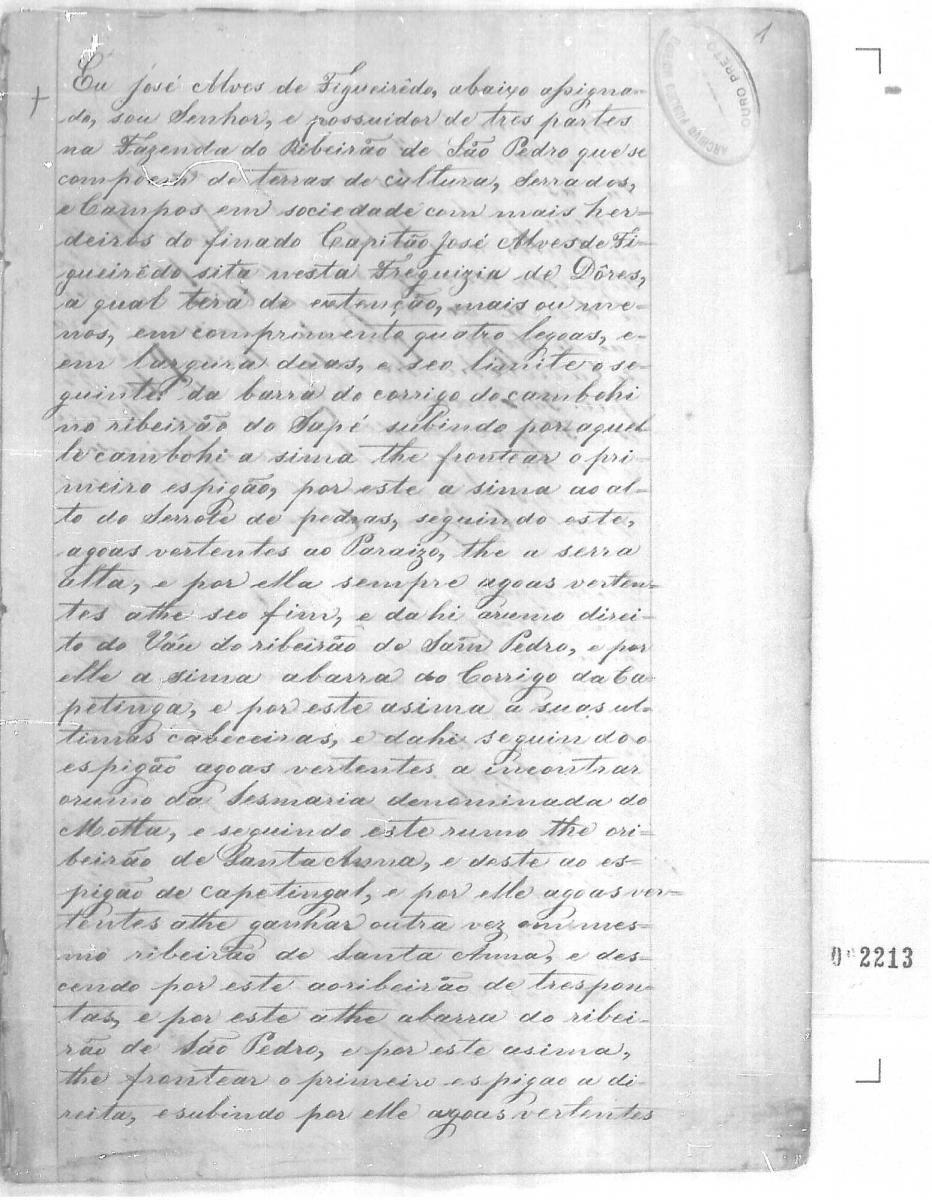 1
ARCHIVO PUBLICO
OURO PRETO
Eu José Alves de Figueirêdo, abaixo assigna-
do, sou Senhor, e possuidor de tres partes
na Fazenda do Ribeirão de São Pedro que se
compoem de terras de cultura, Serrados,
e Campos em sociedade com mais her-
deiros do finado Capitão José Alves de Fi-
gueirêdo sita nesta Freguizia de Dôres,
a qual terá de extenção, mais ou me-
nos, em comprimento quatro legoas, e
em largura duas, e seo limite o se-
guinte: da barra do corrigo do cambohi
no ribeirão do Sapé subindo por aquel
le cambohi a sima the frontear o pri-
meiro espigão, por este a sima ao al-
to do Serrote de pedras, seguindo este,
agoas vertentes ao Paraizo, the a serra
alta, e por ella sempre agoas verten-
tes athe seo fim, e dahi árumo direi-
to do Váu do ribeirão de Sam Pedro, e por
elle a sima abarra do Corrigo da Ca-
petinga, e por este asima a suas ul-
timas cabeceiras, e dahi seguindo o
espigão agoas vertentes a incontrar
orumo da Sesmaria denominada do
Motta, e seguindo este rumo the ori-
beirão de Santa Anna, e deste ao es-
pigão de capetingal, e por elle agoas ver-
tentes athe ganhar outra vez omes-
mo ribeirão de Santa Anna, e des-
cendo por este aoribeirão de trespon-
tas, e por este athe abarra do ribei-
rão de São Pedro, e por este asima,
the frontear o primeiro espigão a di-
reita, esubindo por elle agoas vertentes
2213